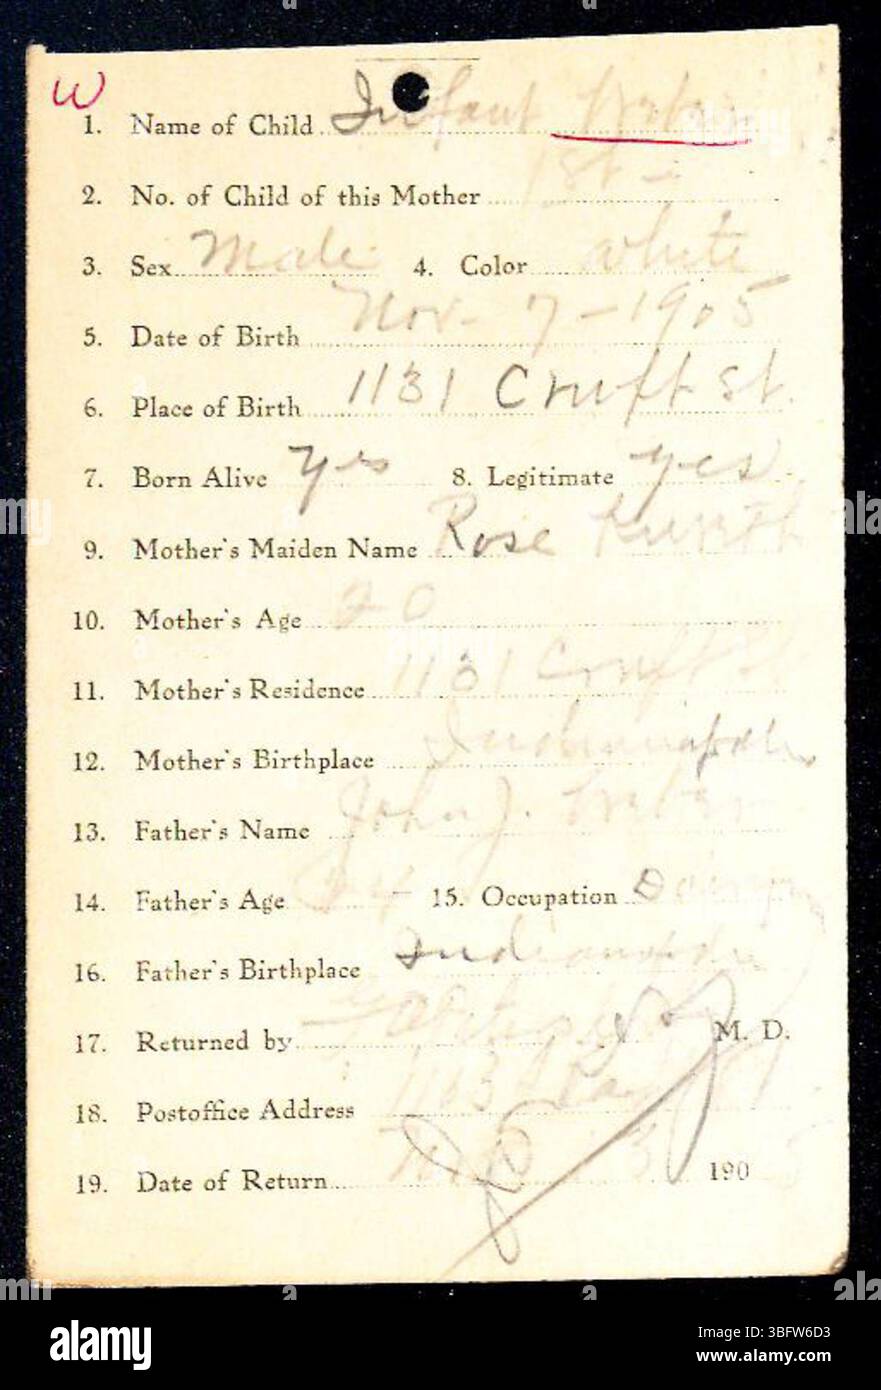 W
1. Name of Child Infant Weber
2. No. of Child of this Mother 1st
3. Sex Male 4. Color white
5. Date of Birth Nov - 7 - 1905
6. Place of Birth 1131 Cruft St.
7. Born Alive yes 8. Legitimate yes
9. Mother's Maiden Name Rose
10. Mother's Age 20
11. Mother's Residence 1131 Cruft St
12. Mother's Birthplace Indianapolis
13. Father's Name John J. Weber
14. Father's Age 24 15. Occupation
16. Father's Birthplace Indianapolis
17. Returned by M. D.
18. Postoffice Address
19. Date of Return 190
alamy
Image ID: 3BFW6D3
www.alamy.com